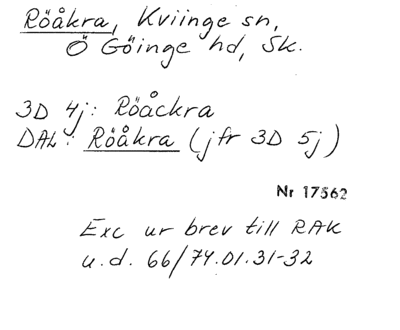 Röåkra, Kviinge sn,
Ö Göinge hd, Sk.
3D 4j: Röåckra
DAL: Röåkra (jfr 3D 5j)
Nr 17562
Exc ur brev till RAK
u.d. 66/74.01.31-32